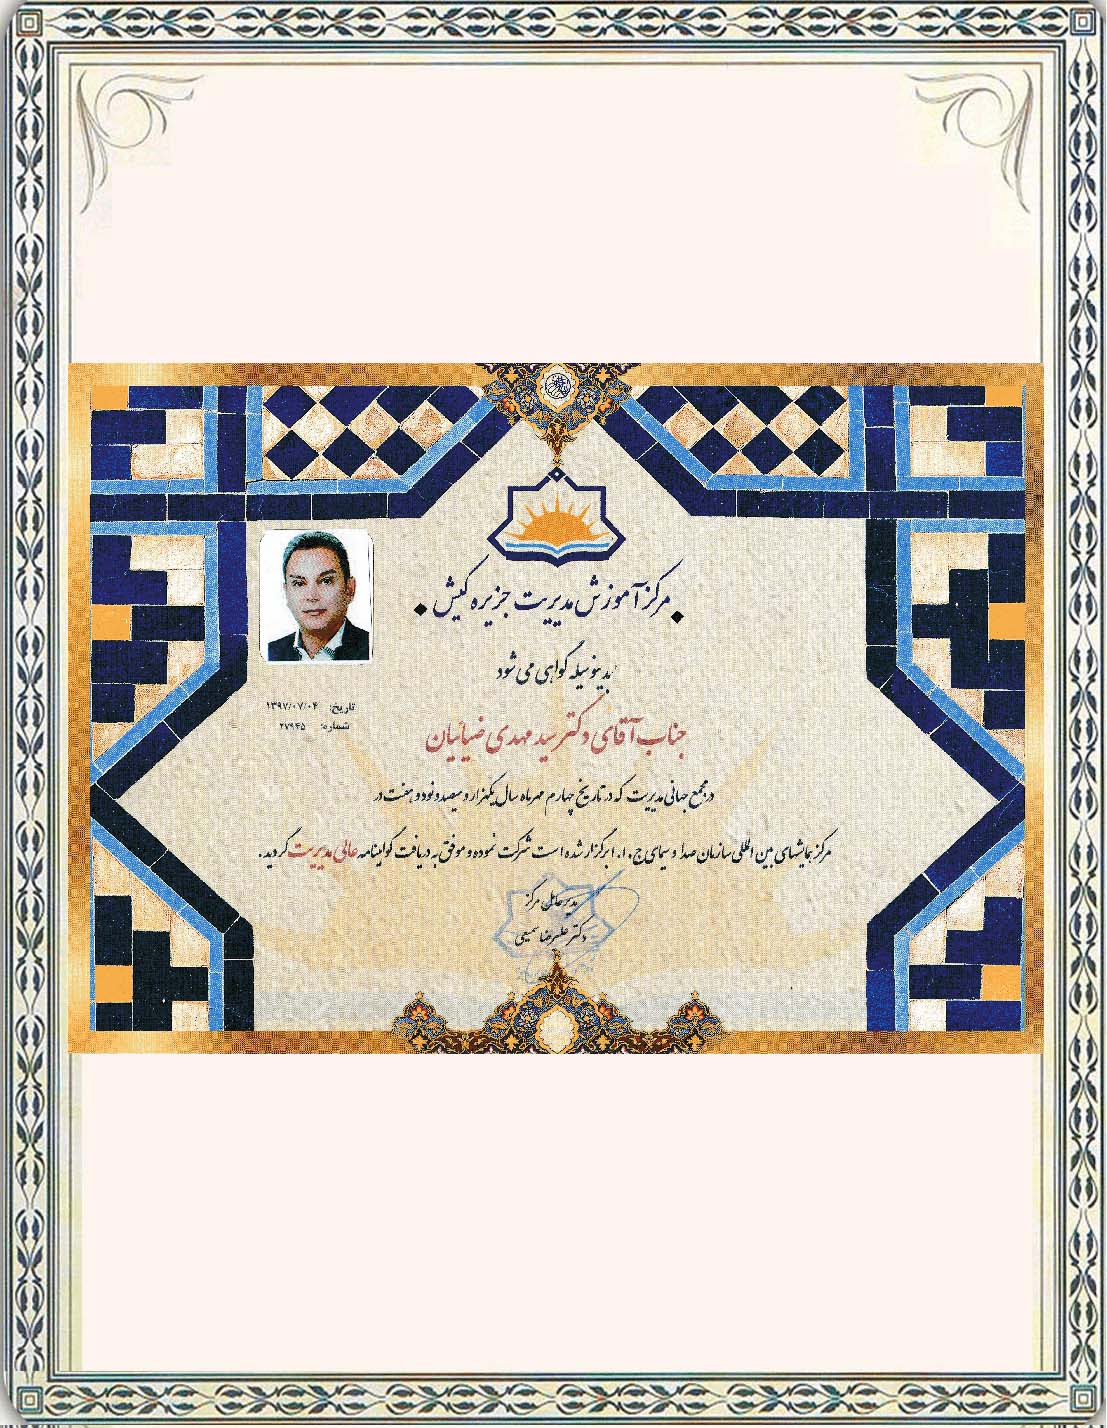 مرکز آموزش مدیریت جزیره کیش
بدینوسیله گواهی می شود
تاریخ: ۱۳۹۷/۰۷/۰۴
شماره: ۲۷۹۴۵
جناب آقای دکتر سید مهدی ضیائیان
در مجمع جهانی مدیریت که در تاریخ چهارم مهرماه سال یکهزار و سیصد و نود و هفت در
مرکز همایشهای بین المللی سازمان صدا و سیمای ج.ا.ا برگزار شده است شرکت نموده و موفق به دریافت گواهینامه عالی مدیریت گردید.
مدیرعامل مرکز
دکتر علیرضا سمیعی